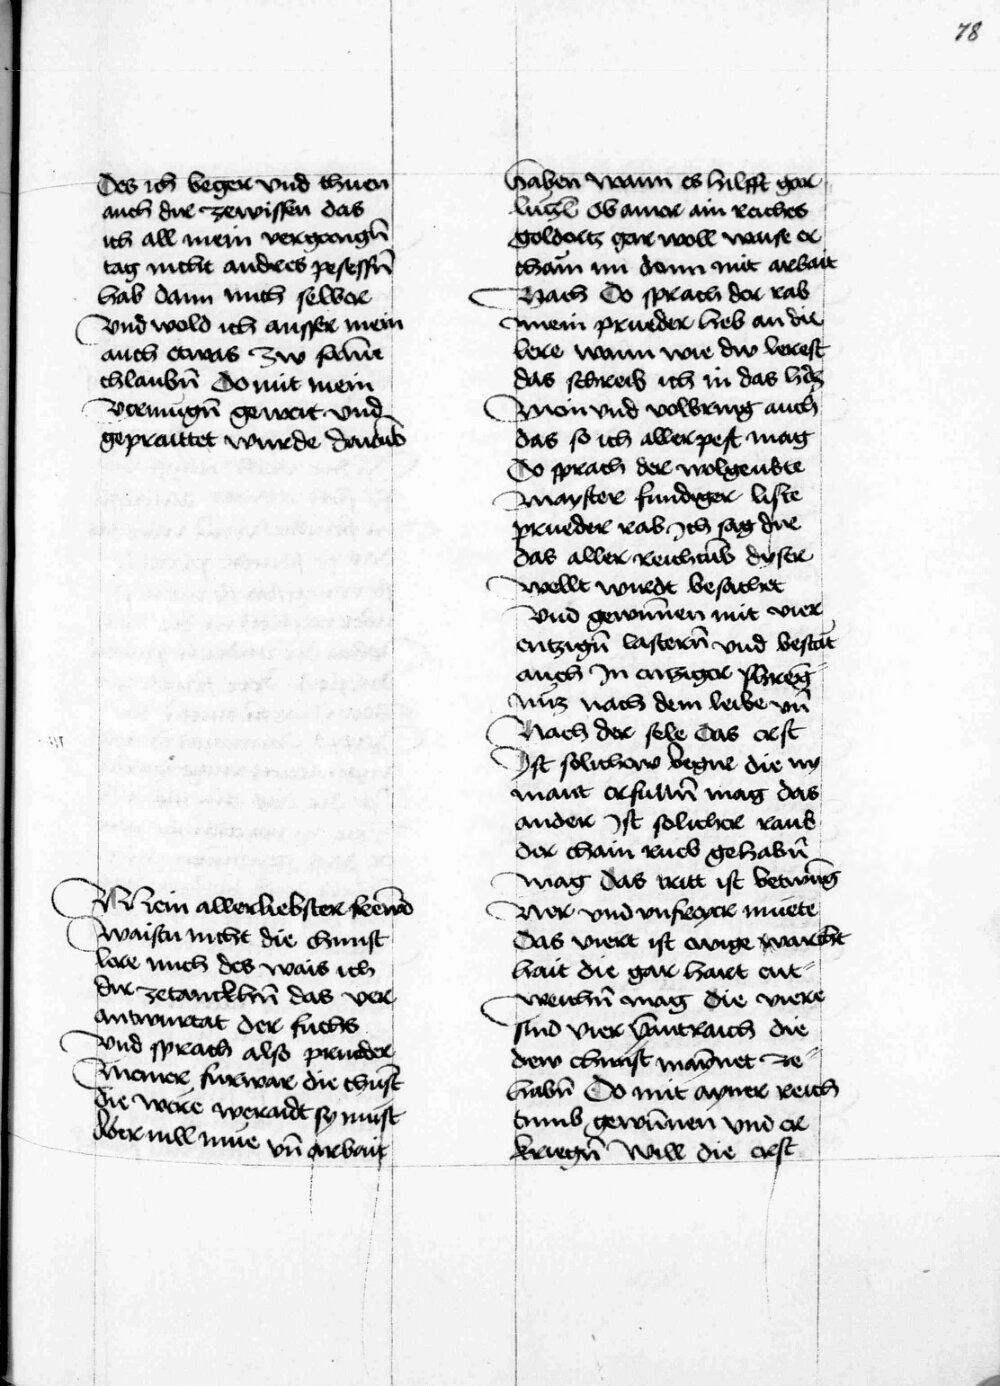 78
Des ich beger vnd thuen
auch dir zewissen das
ich all mein vergangn̄
tag nicht andres pesessn̄
hab dann mich selber
Vnd wold ich ausser mein
auch etwas zw
chlaubn̄ Do mit mein
Vermugn̄ geweit vnd
gepraittet wurde
Mein allerliebster
Waistu nicht die chunst
lere mich des wais ich
dir zetanckhn̄ das ver
antwurtat der fuchs
Vnd sprach also prueder
Meiner furwar die chūst
die were sy must
aber vill mue vn̄ arbait
haben wann es hilfft gar
lutzl Ob aner ain reiches
goldertz gar woll waise er
cham im dann mit arbait
Nach Do sprach der rab
mein prueder heb an die
lere wann wie dw lerest
das schreib ich in das h̄tz
Mein vnd volbring auch
das so ich aller pest mag
Do sprach der wolgeubte
Mayster fundiger liste
prueder rab Ich sag dir
das aller reichtūb dyser
wellt wirdt besachet
Vnd gewinnen mit vier
entzign̄ lastern̄ vnd bestāt
auch In entziger
nūz nach dem leibe vn̄
Nach der sele Das erst
Ist solichew begir die ny
mant erfulln̄ mag das
ander Ist solicher raub
der chain rueb gehabn̄
mag das tritt ist
Ner vnd vnfreyer muete
Das viert ist ewige
hait die gar hart ent=
weichn̄ mag die viere
sind vier die
dew chunst maynet ze=
habn̄ Do mit ayner reich
tumb gewinnen vnd er
kriegn̄ will die erst